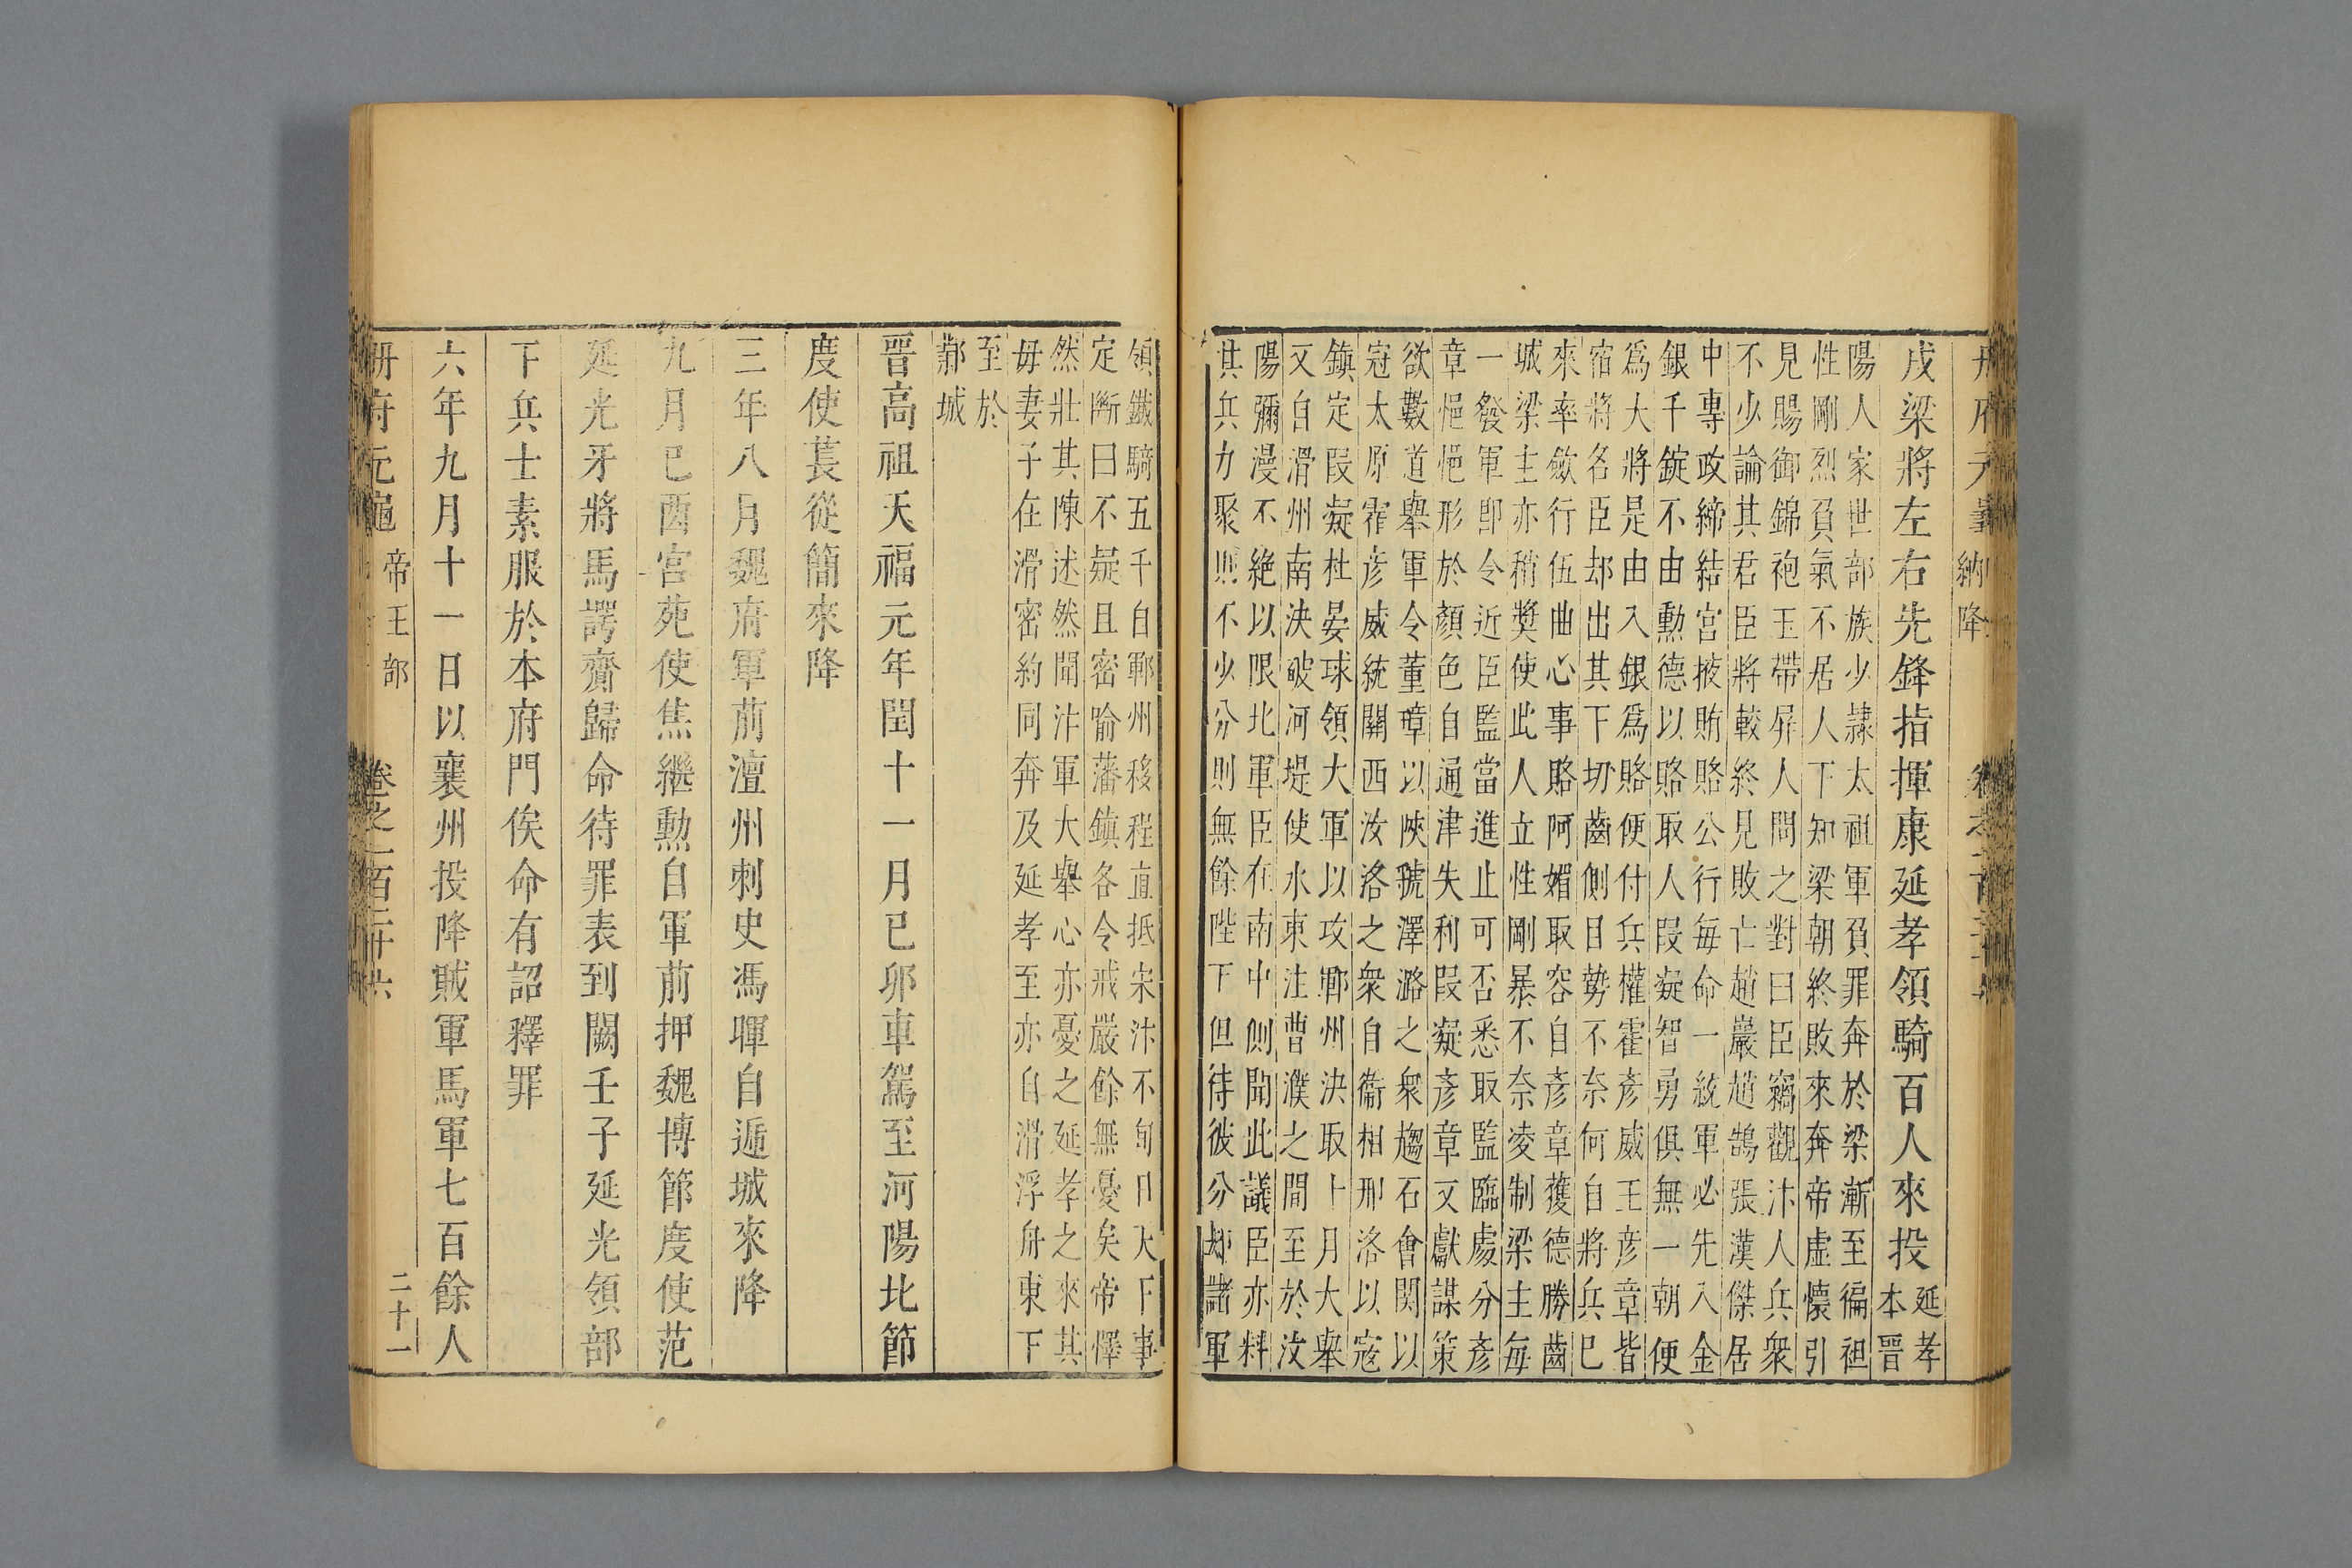 冊府元龜 納降
戌梁將左右先鋒指揮康延孝領騎百人來投延孝
本晉
陽人家世部族少隷太祖軍負罪奔於梁漸至徧袒
性剛烈負氣不居人下知梁朝終敗來奔帝虛懷引
見賜御錦袍玉帶屏人問之對曰臣竊觀汴人兵衆
不少論其君臣將較終見敗亡趙巖趙鵠張漢傑居
中專政締結宮掖賄賂公行每命一統軍必先入金
銀千錠不由勳德以賂取人段凝智勇俱無一朝便
爲大將是由入銀爲賂便付兵權霍彥威王彥章皆
宿將名臣却出其下切齒側目勢不奈何自將兵巳
來率斂行伍曲心事賂阿媚取容自彥章獲德勝齒
城梁主亦稍奬使此人立性剛暴不奈凌制梁主每
一發軍卽令近臣監當進止可否悉取監臨處分彥
章悒悒形於顏色自通津失利段凝彥章又獻謀策
欲數道舉軍令董璋以陜虢澤潞之衆趨石會関以
冦太原霍彥威統關西汝洛之衆自衞相邢洛以寇
鎮定段凝杜晏球領大軍以攻鄆州決取十月大舉
又自滑州南決破河堤使水東注曹濮之間至於汶
陽彌漫不絶以限北軍臣在南中側聞此議臣亦料
其兵力聚則不少分則無餘陛下但待彼分却諸軍
領鐵騎五千自鄆州移程直抵宋汴不旬日天下事
定斷曰不疑且密喻藩鎮各令戒嚴餘無憂矣帝懌
然壯其陳述然聞汴軍大舉心亦憂之延孝之來其
毋妻子在滑密約同奔及延孝至亦自滑浮舟東下
至於
鄴城
晉高祖天福元年閏十一月巳卯車駕至河陽北節
度使萇從簡來降
三年八月魏府軍前澶州刺史馮暉自逓城來降
九月巳酉宮苑使焦繼勳自軍前押魏博節度使范
延光牙將馬諤齎歸命待罪表到闕壬子延光領部
下兵士素服於本府門俟命有詔釋罪
六年九月十一日以襄州投降賊軍馬軍七百餘人
冊府元龜 帝王部 卷之一百二十六 二十一